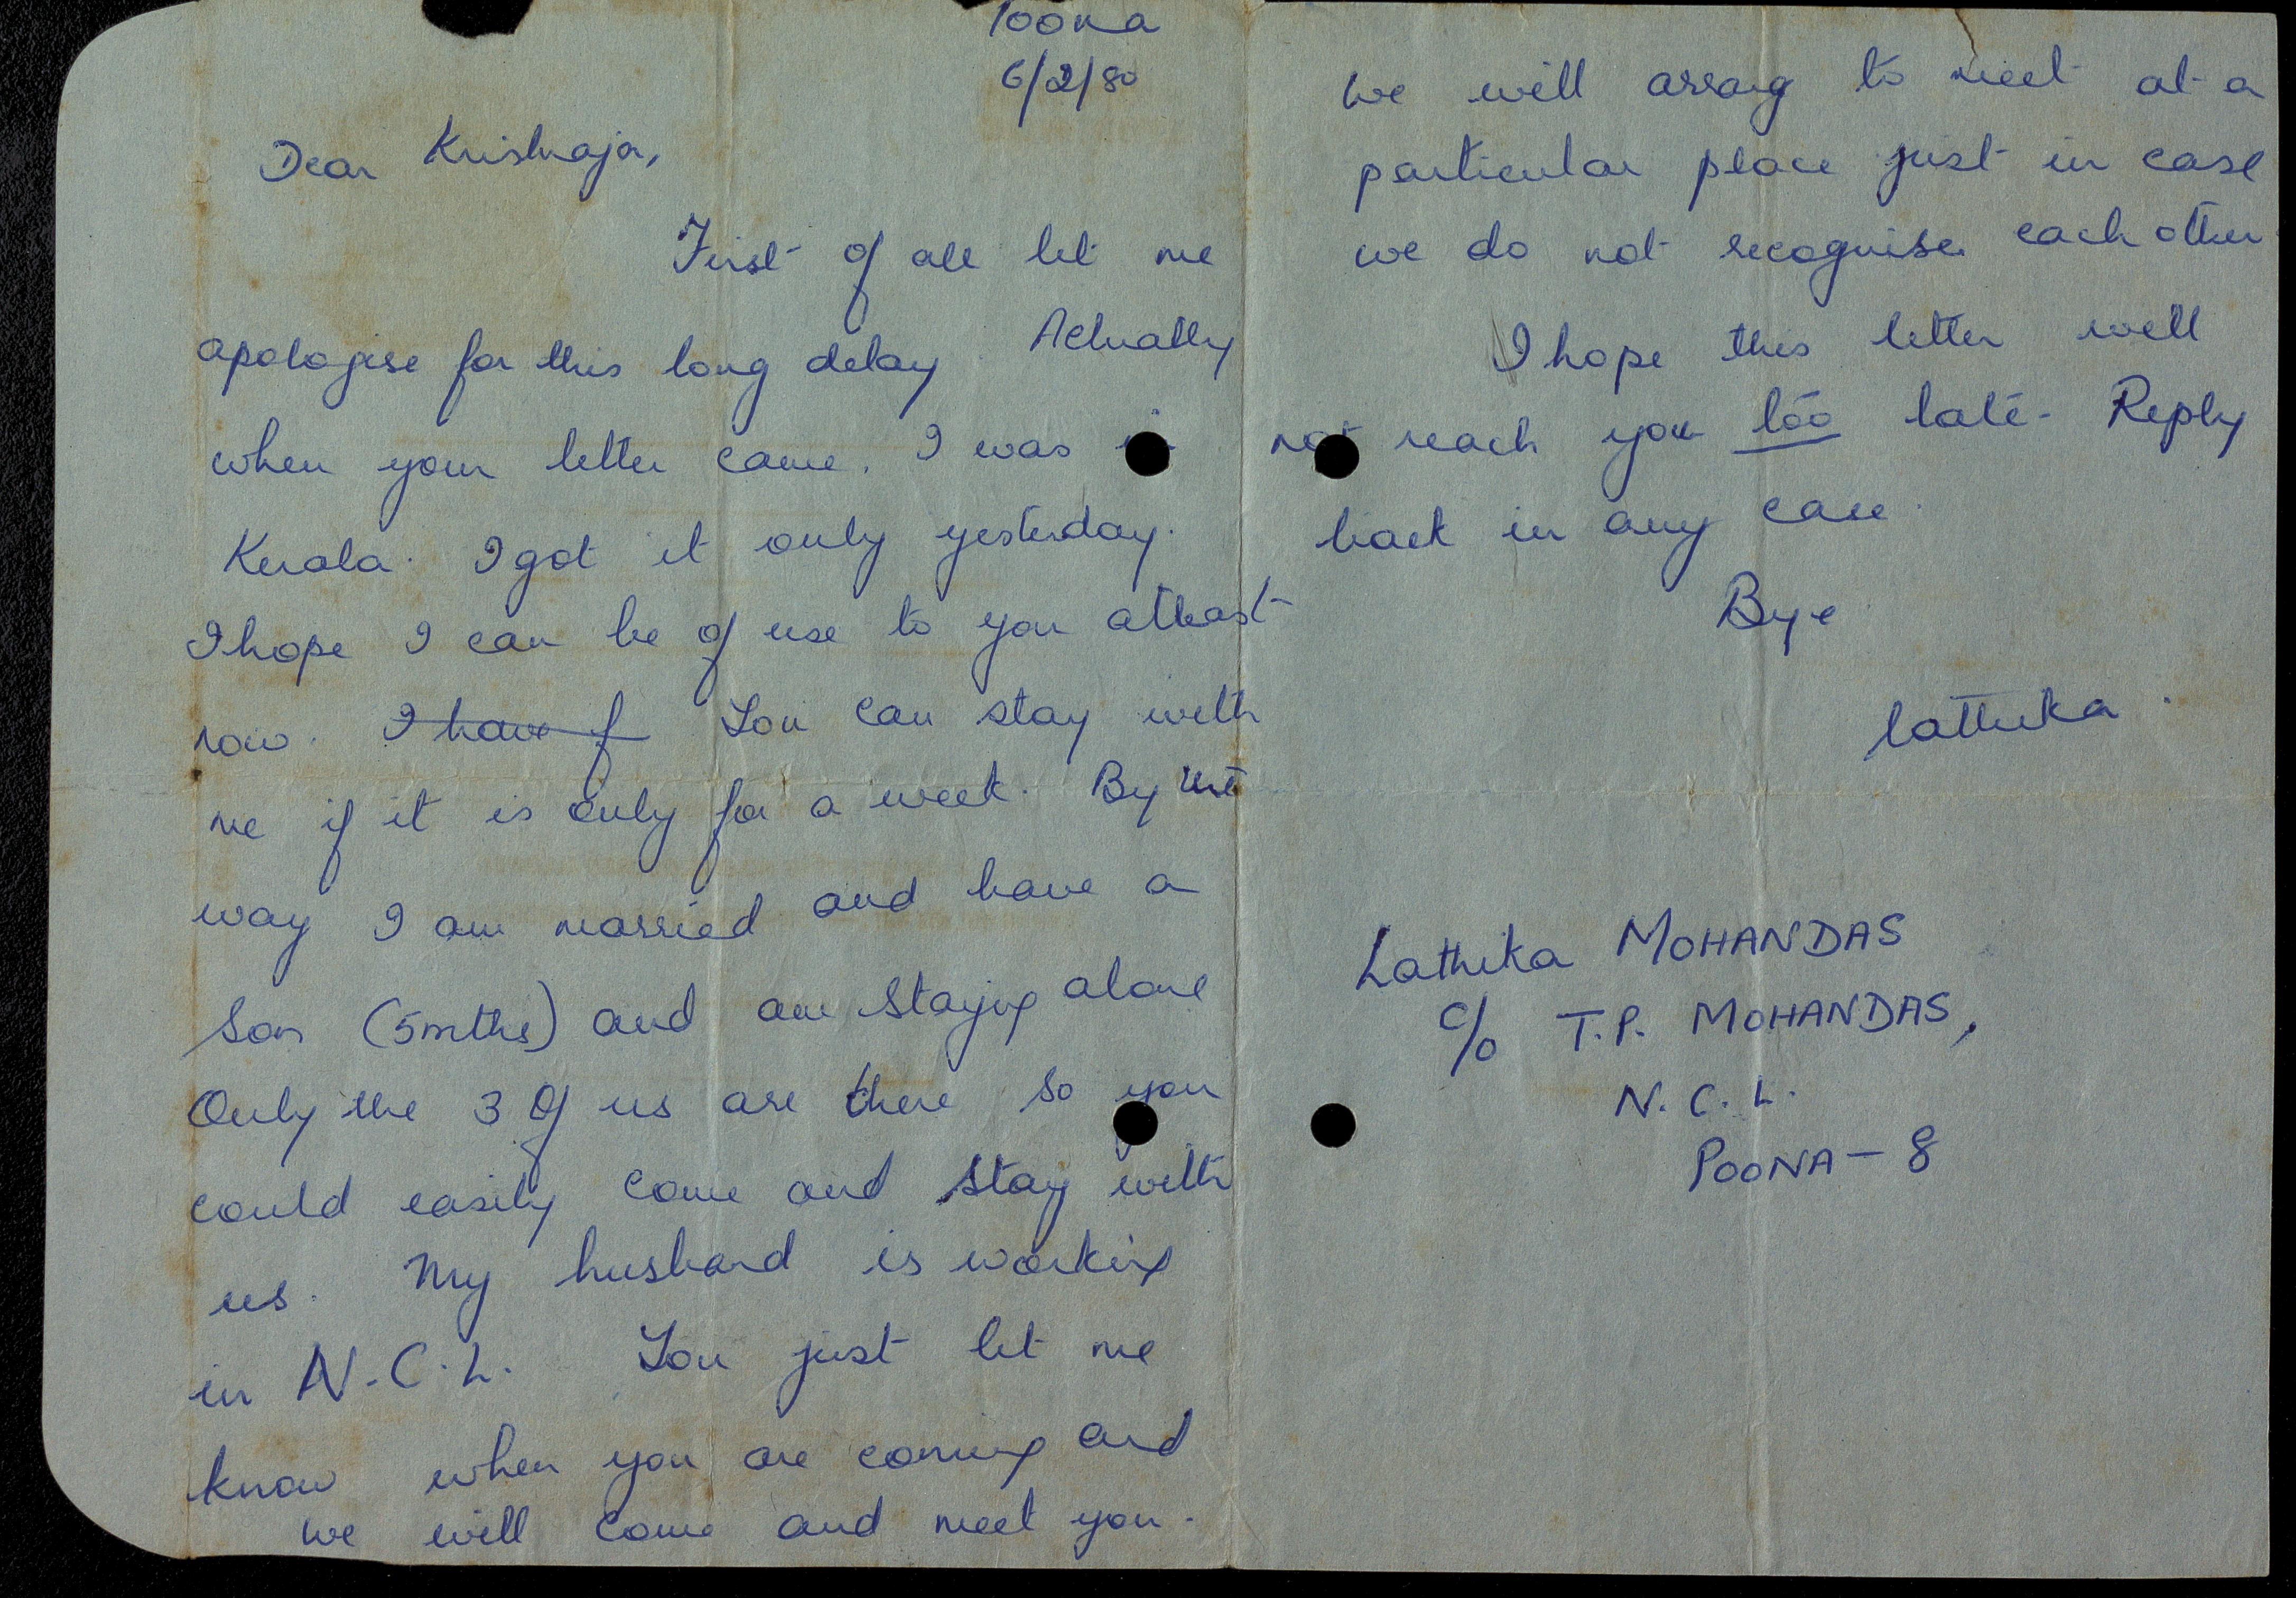 Poona
6/2/80
Dear Krishnaja,
First of all let me
apologise for this long delay. Actually
when your letter came, I was in
Kerala. I got it only yesterday.
I hope I can be of use to you atleast
now. I have f You can stay with
me if it is only for a week. By the
way I am married and have a
son (5mths) and am staying alone
Only the 3 of us are there so you
could easily come and stay with
us. My husband is working
in N.C.L. You just let me
know when you are coming and
we will come and meet you.
We will arrang to meet at a
particular place just in case
we do not recognise each other
I hope this letter will
not reach you too late - Reply
back in any case.
Bye
Lathika.
Lathika MOHANDAS
c/o T.P. MOHANDAS,
N.C.L.
POONA - 8